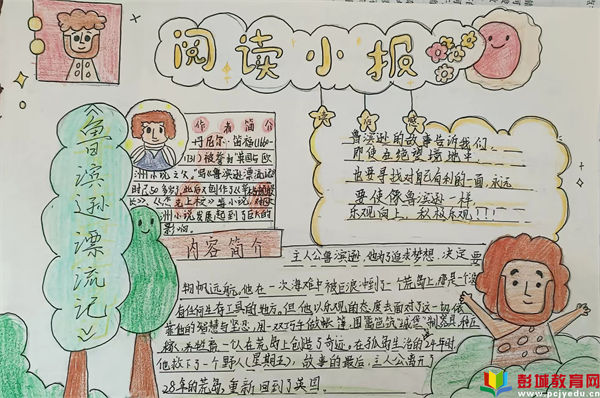 阅读小报
《鲁滨逊漂流记》
作者简介
丹尼尔·笛福(1660-
1731)被誉为英国与欧
洲小说之父。写《鲁滨逊漂流记》
时已50多岁,此后又创作了
等小说,
洲小说发展起到了巨大的
影响。
鲁滨逊的故事告诉我们,
即使在绝望境地中,
也要寻找对自己有利的一面,永远
要使像鲁滨逊一样,
乐观向上,积极乐观!!!
内容简介
主人公鲁滨逊,他为了追求梦想,决定要
扬帆远航,他在一次海难中被巨浪冲到了一个荒岛上,那是一个没
有任何生存工具的地方,但他以乐观的态度去面对了这一切,依
靠他的智慧与坚忍,用一双巧手做帐篷,围篱笆筑"城堡"制器具种庄
稼,养牲畜一切,在荒岛上创造了奇迹,在孤岛生活的24年时
他救下了一个野人(星期五),故事的最后,主人公离开了
28年的荒岛,重新回到了英国
彭城教育网
www.pcjyedu.cn